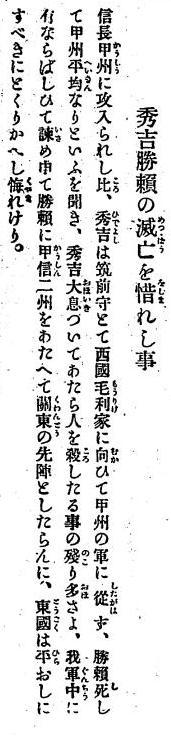 秀吉勝賴の滅亡を惜れし事
信長甲州に攻入られし比、秀吉は筑前守とて西國毛利家に向ひて甲州の軍に從はず、勝賴死し
て甲州平均なりといふを聞き、秀吉大息づいてあたら人を殺したる事の殘り多さよ、我軍中に
有ならばしひて諫め申て勝賴に甲信二州をあたへて關東の先陣としたらんに、東國は平おしに
すべきにとくりかへし悔れけり。